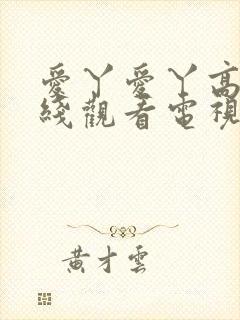 愛丫愛丫高
綫觀看電視
黃才雲